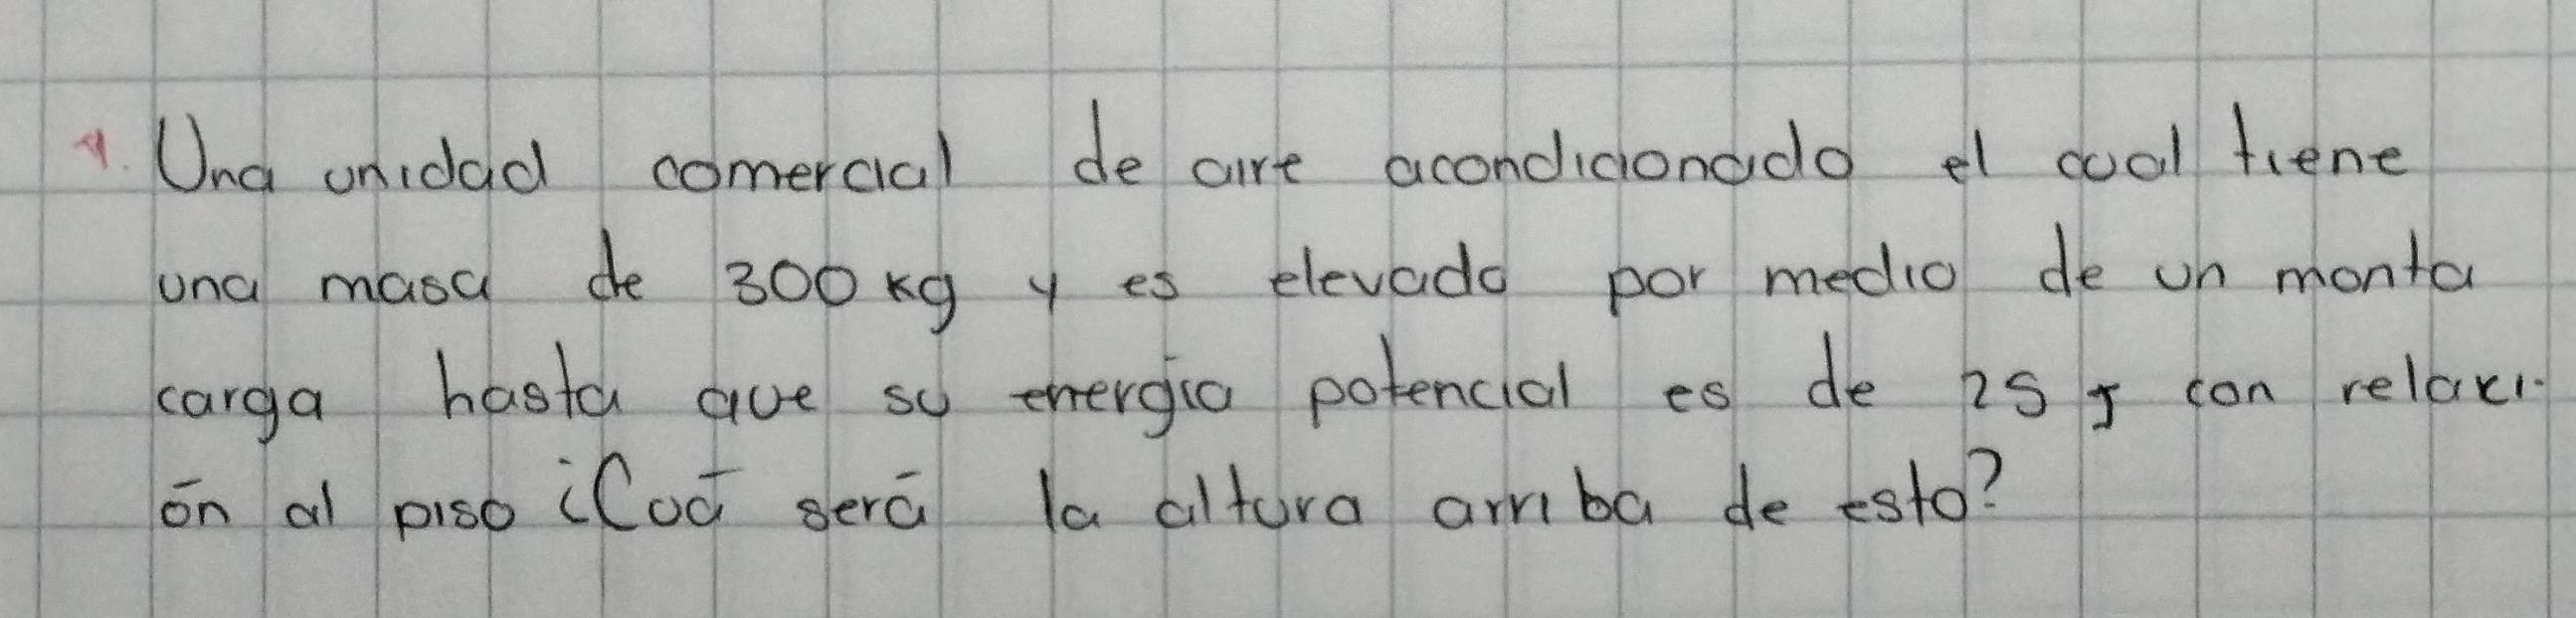 1. Una unidad comercial de aire acondicionado el cual tiene
una masa de 300 kg y es elevado por medio de un monta
carga hasta que su energía potencial es de 25 J con relaci-
ón al piso ¿Cuá será la altura arriba de esto?